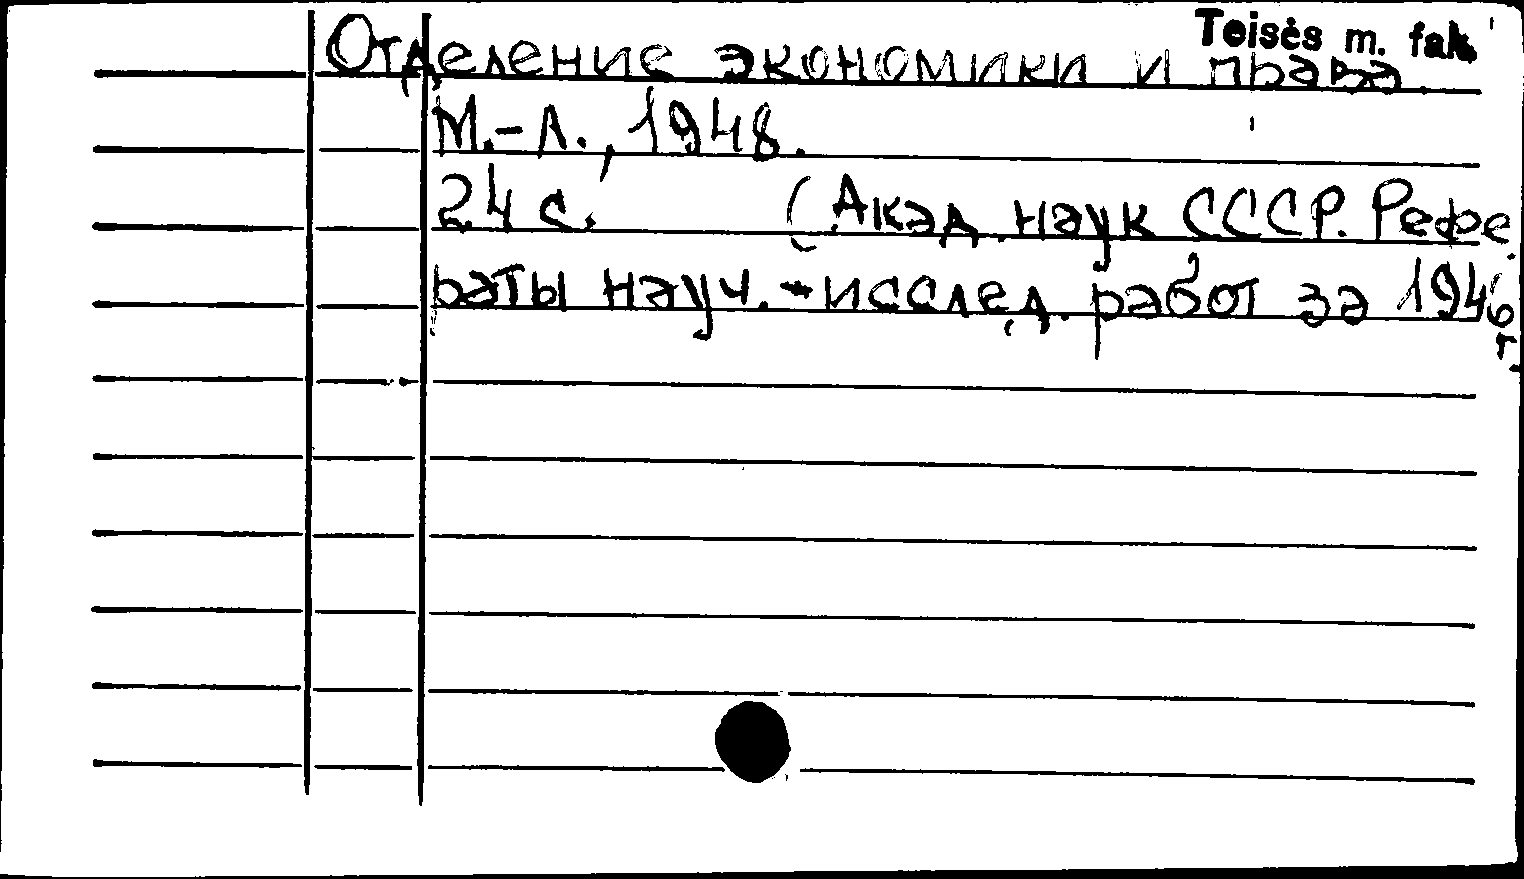 Teisės m. fak.
Отделение экономики и права.
М.-Л., 1948.
24 с. (Акад. наук СССР. Рефе
раты науч.-исслед. работ за 1946
г.